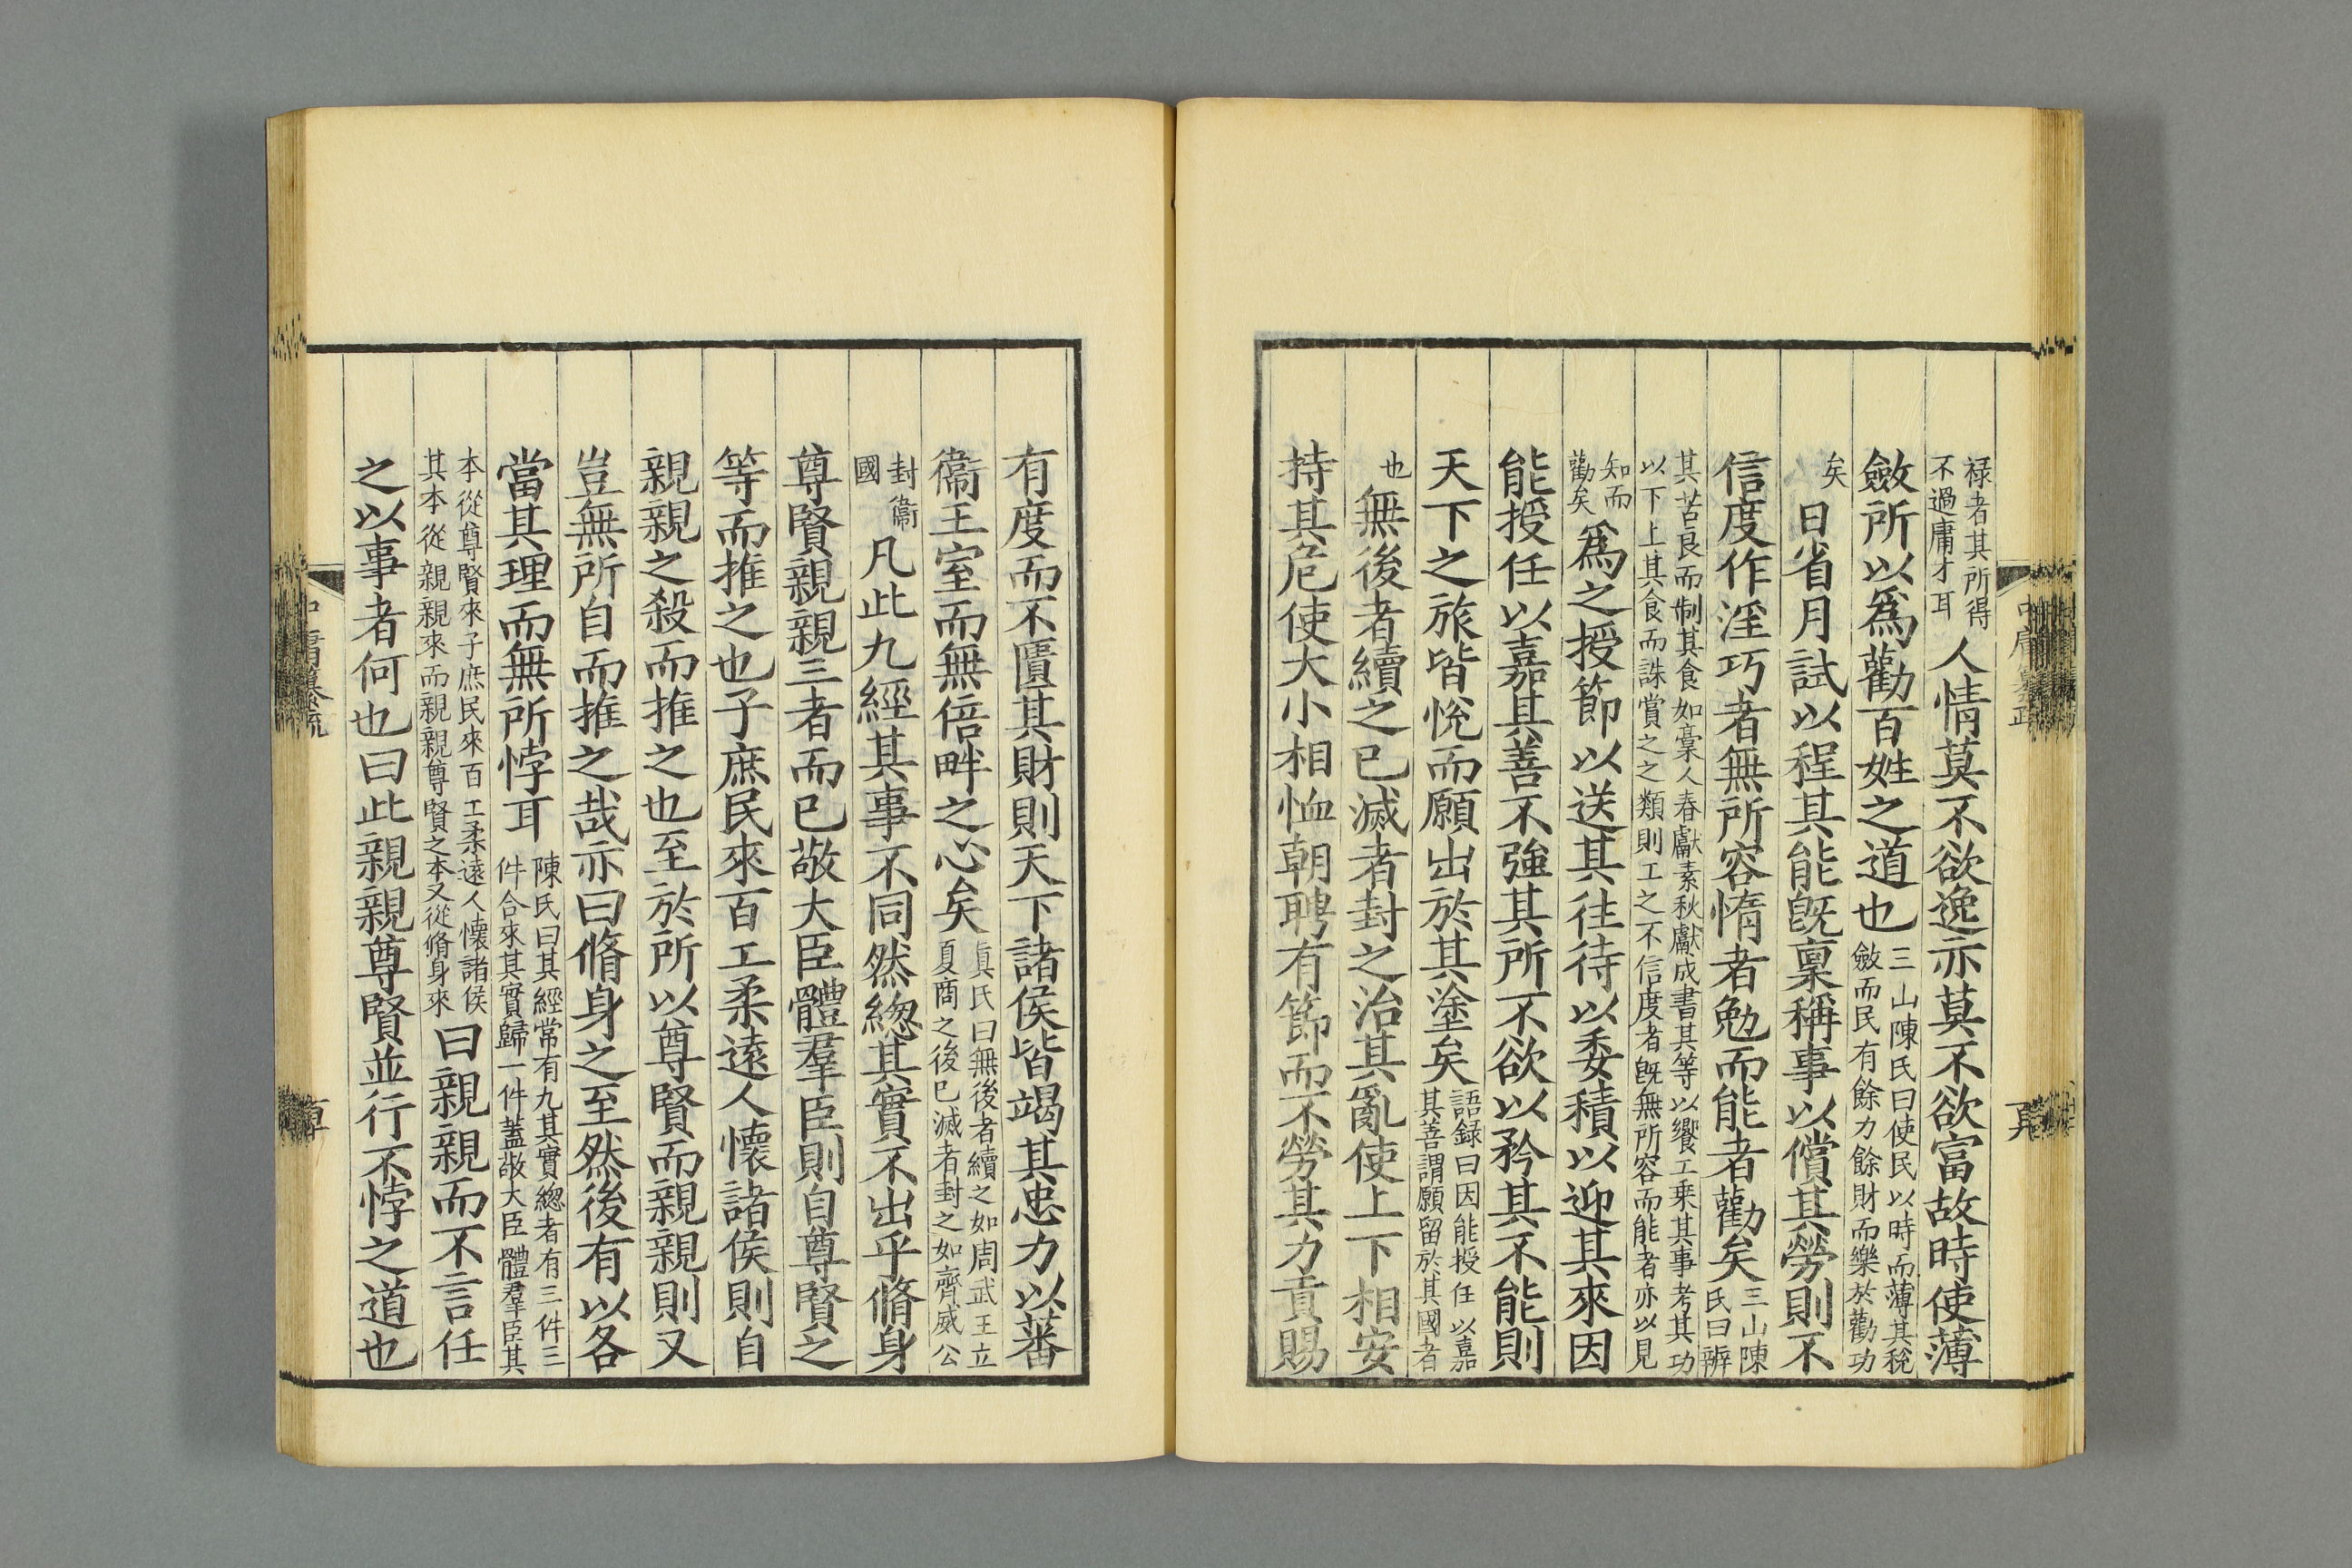 禄者其所得
不過庸才耳
人情莫不欲逸亦莫不欲富故時使薄
斂所以爲勸百姓之道也
三山陳氏曰使民以時而薄其稅
斂而民有餘力餘財而樂於勸功
矣
日省月試以程其能旣稟稱事以償其勞則不
信度作淫巧者無所容惰者勉而能者勸矣
三山陳
氏曰辨
其苦良而制其食如槀人春獻素秋獻成書其等以饗工乗其事考其功
以下上其食而誅賞之之類則工之不信度者旣無所容而能者亦以見
知而
勸矣
爲之授節以送其往待以委積以迎其來因
能授任以嘉其善不強其所不欲以矜其不能則
天下之旅皆悅而願出於其塗矣
語録曰因能授任以嘉
其善謂願留於其國者
也
無後者續之已滅者封之治其亂使上下相安
持其危使大小相恤朝聘有節而不勞其力貢賜
有度而不匱其財則天下諸侯皆竭其忠力以蕃
衞王室而無倍畔之心矣
眞氏曰無後者續之如周武王立
夏商之後已滅者封之如齊威公
封衞
國
凡此九經其事不同然緫其實不出乎脩身
尊賢親親三者而已敬大臣體羣臣則自尊賢之
等而推之也子庶民來百工柔遠人懷諸侯則自
親親之殺而推之也至於所以尊賢而親親則又
豈無所自而推之哉亦曰脩身之至然後有以各
當其理而無所悖耳
陳氏曰其經常有九其實緫者有三件三
件合來其實歸一件蓋敬大臣體羣臣其
本從尊賢來子庶民來百工柔遠人懷諸侯
其本從親親來而親親尊賢之本又從脩身來
曰親親而不言任
之以事者何也曰此親親尊賢並行不悖之道也